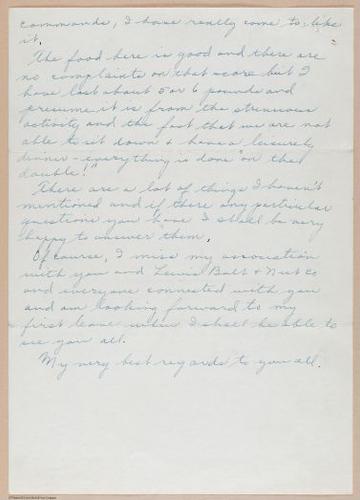 commands, I have really come to like
it.
The food here is good and there are
no complaints on that score but I
have lost about 5 or 6 pounds and
presume it is from the strenuous
activity and the fact that we are not
able to sit down & have a leisurely
dinner - everything is done "on the
double!"
There are a lot of things I haven't
mentioned and if there any particular
questions you have I shall be very
happy to answer them.
Of course, I miss my association
with you and Lewis Bolt & Nut Co
and everyone connected with you
and am looking forward to my
first leave when I shall be able to
see you all.
My very best regards to you all.